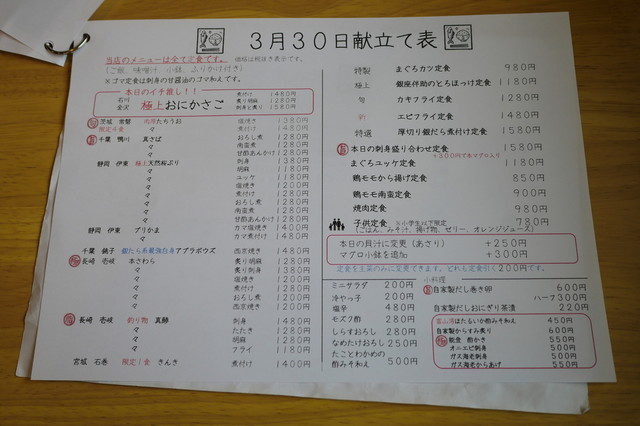 3月30日献立て表
当店のメニューは全て定食です。
価格は税抜き表示です。
(ご飯、味噌汁、小鉢、ふりかけ付き)
※ゴマ定食は刺身の甘醤油のゴマ和えです。
本日のイチ推し!!
石川 金沢 極上おにかさご
煮付け 1480円
炙り胡麻 1280円
刺身と炙り 1580円
茨城 常磐 肉厚たちうお 塩焼き 1380円
限定4食 々 煮付け 1480円
千葉 鴨川 真さば おろし煮 1280円
々 南蛮煮 1280円
々 甘酢あんかけ 1280円
静岡 伊東 極上天然桜ぶり 刺身 1380円
々 胡麻 1180円
々 ユッケ 1180円
々 塩焼き 1200円
々 煮付け 1200円
々 おろし煮 1200円
々 南蛮煮 1200円
々 甘酢あんかけ 1280円
静岡 伊東 ブリかま カマ塩焼き 1400円
々 カマ煮付け 1480円
千葉 銚子 銀だら系最強白身アブラボウズ 西京焼き 1480円
長崎 壱岐 本さわら 炙り胡麻 1280円
々 炙り刺身 1380円
々 塩焼き 1200円
々 煮付け 1200円
々 おろし煮 1200円
々 西京焼き 1200円
長崎 壱岐 釣り物 真鯵 刺身 1480円
々 たたき 1280円
々 胡麻 1280円
々 フライ 1180円
宮城 石巻 限定1食 きんき 煮付け 1400円
特製 まぐろカツ定食 980円
極上 銀座伴助のとろほっけ定食 1180円
旬 カキフライ定食 1280円
新 エビフライ定食 1480円
特選 厚切り銀だら煮付け定食 1580円
本日の刺身盛り合わせ定食 1580円
まぐろユッケ定食 1180円
鶏モモから揚げ定食 850円
鶏モモ南蛮定食 900円
焼肉定食 980円
子供定食 ※小学生以下限定 780円
(ごはん、みそ汁、揚げ物、ゼリー、オレンジジュース)
本日の貝汁に変更(あさり) +250円
マグロ小鉢を追加 +300円
定食を主菜のみに変更できます。どれも定食引く200円です。
小料理
ミニサラダ 200円
冷やっ子 200円
塩辛 480円
モズク酢 280円
しらすおろし 280円
なめたけおろし 250円
たことわかめの酢みそ和え 500円
自家製だし巻き卵 600円
ハーフ 300円
自家製だしおにぎり茶漬 220円
富山湾ほたるいか酢みそ和え 450円
自家製からすみ炙り 600円
能登 酢かき 550円
オニエビ刺身 500円
ガス海老刺身 500円
ガス海老からあげ 550円